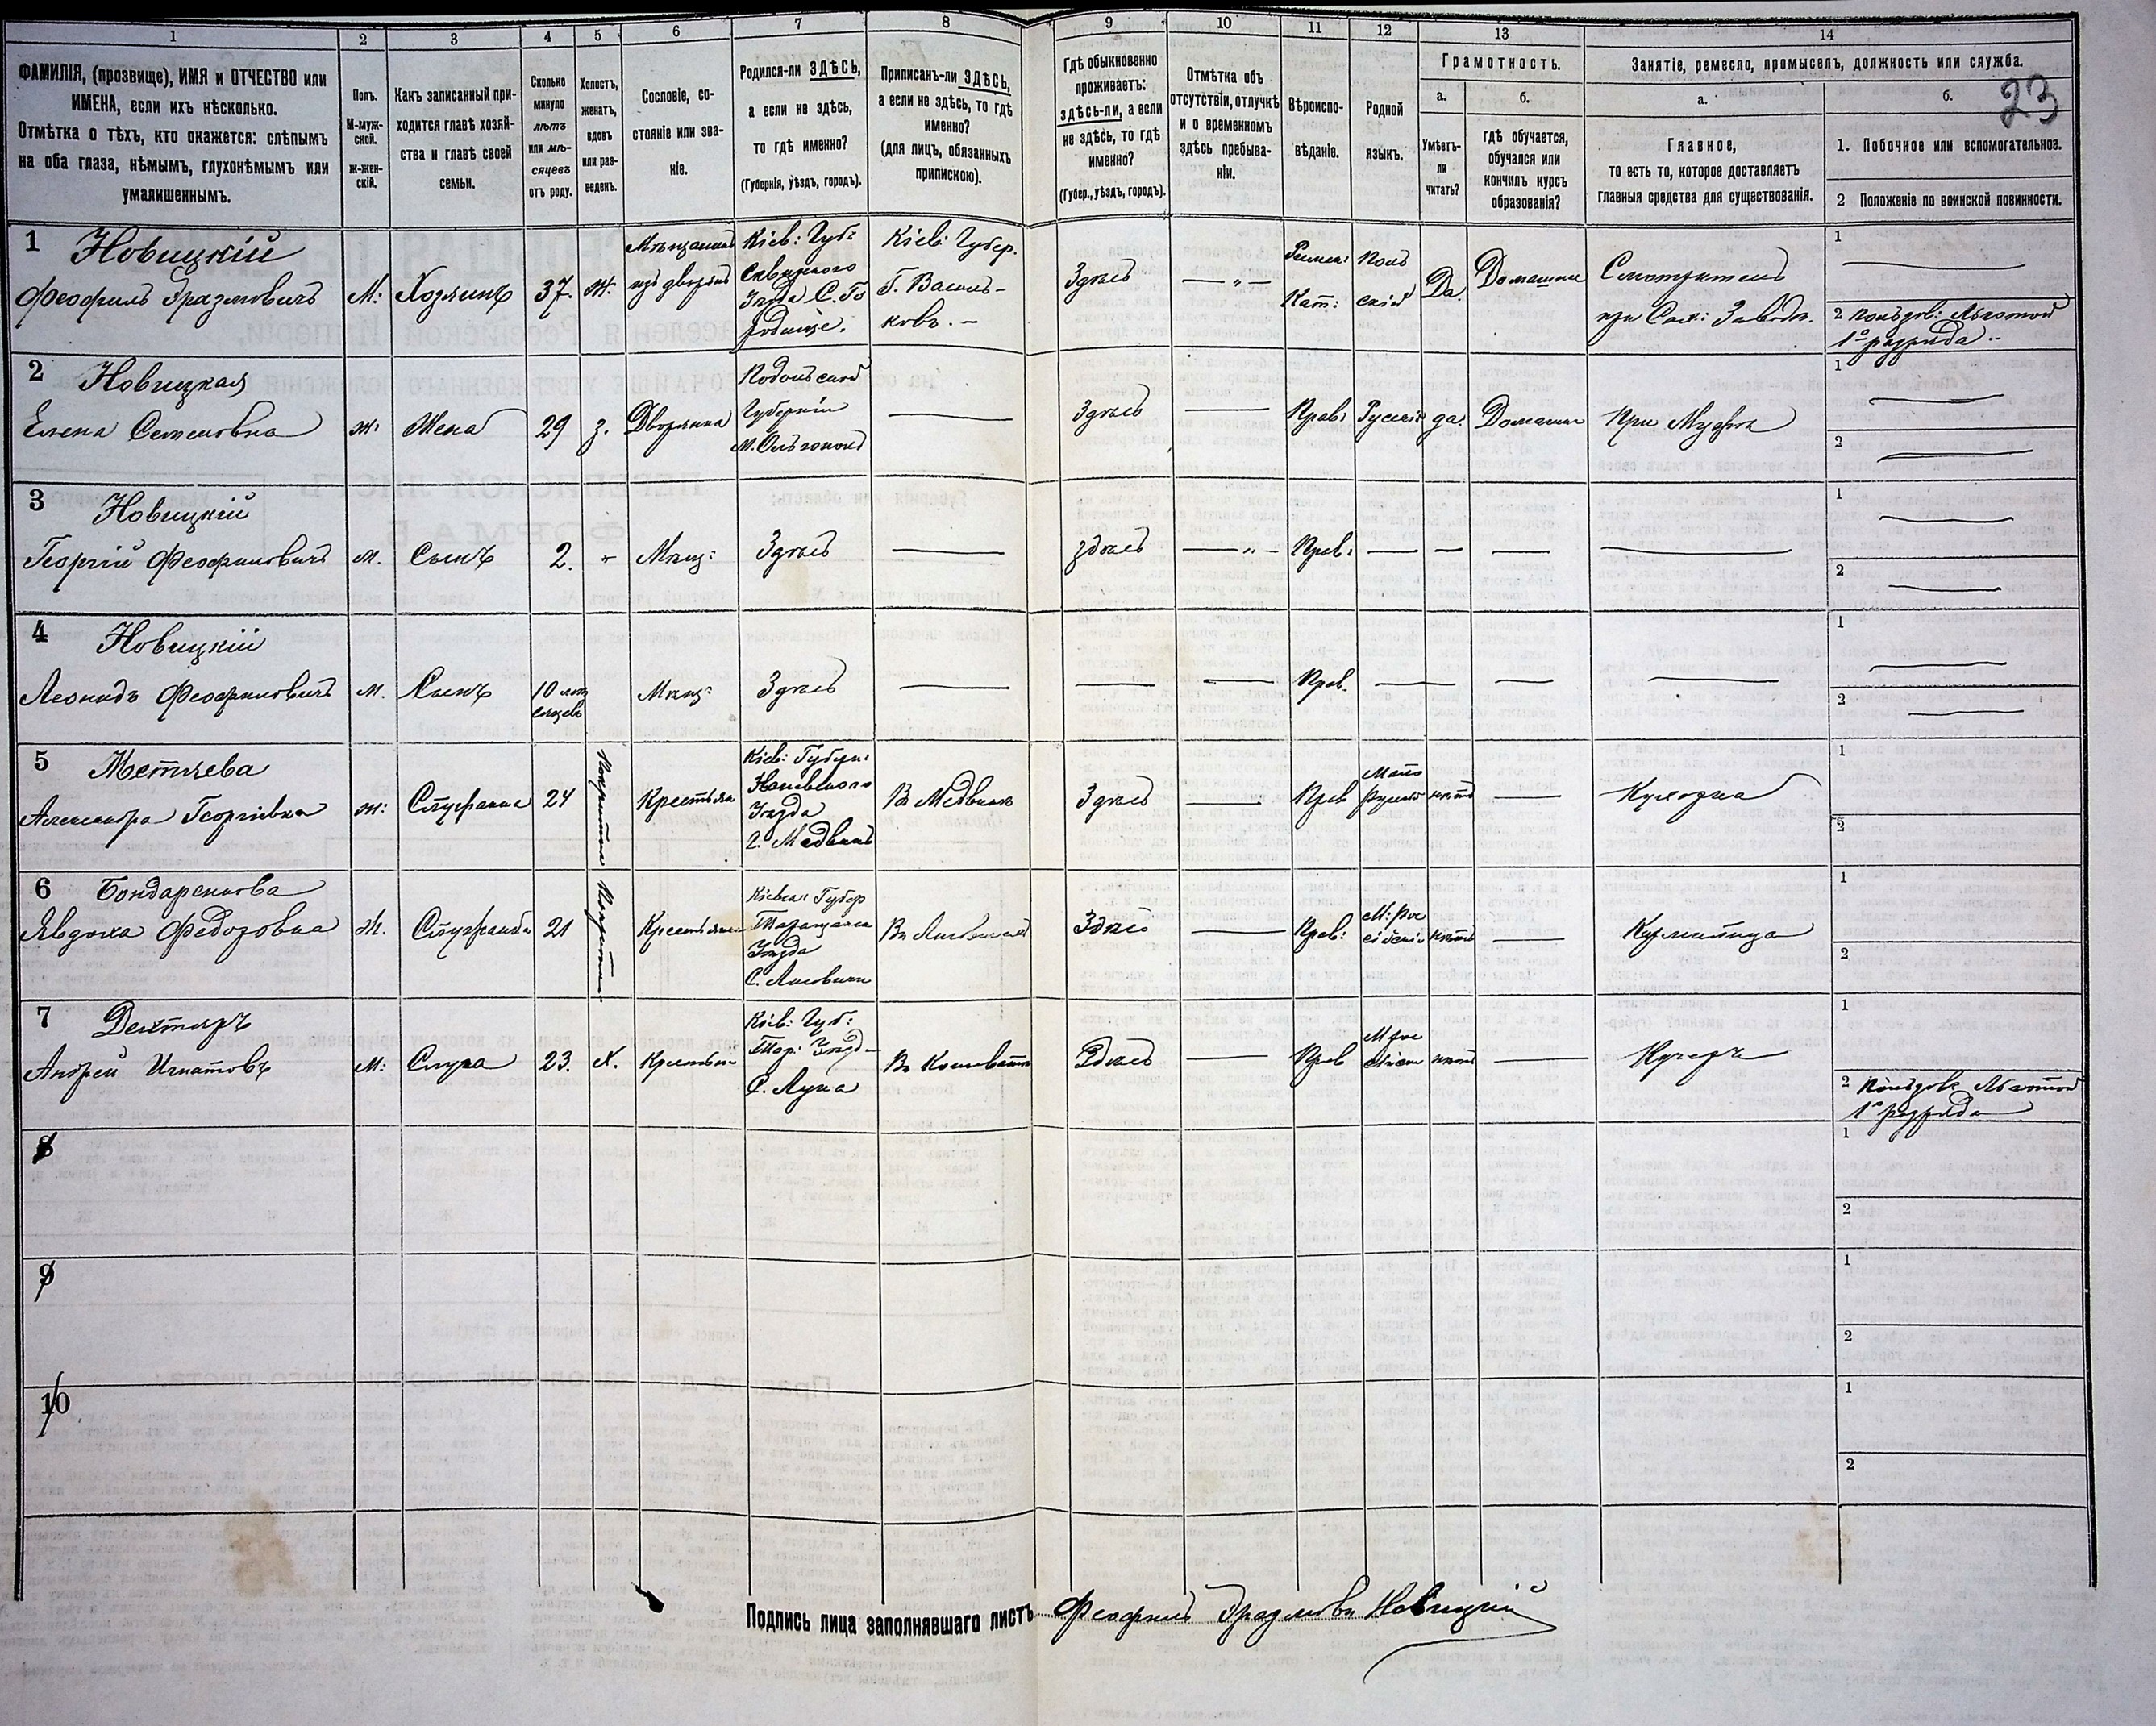 1 2 3 4 5 6 7 8 9 10 11 12 13 14
ФАМИЛІЯ, (прозвище), ИМЯ и ОТЧЕСТВО или
ИМЕНА, если ихъ нѣсколько.
Отмѣтка о тѣхъ, кто окажется: слѣпымъ
на оба глаза, нѣмымъ, глухонѣмымъ или
умалишеннымъ.
Полъ.
М-муж-
ской.
ж-жен-
скій.
Какъ записанный при-
ходится главѣ хозяй-
ства и главѣ своей
семьи.
Сколько
минуло
лѣтъ
или мѣ-
сяцевъ
отъ роду.
Холостъ,
женатъ,
вдовъ
или раз-
веденъ.
Сословіе, со-
стояніе или зва-
ніе.
Родился-ли ЗДѢСЬ,
а если не здѣсь,
то гдѣ именно?
(Губернія, уѣздъ, городъ).
Приписанъ-ли ЗДѢСЬ,
а если не здѣсь, то гдѣ
именно?
(для лицъ, обязанныхъ
припискою).
Гдѣ обыкновенно
проживаетъ:
здѣсь-ли, а если
не здѣсь, то гдѣ
именно?
(Губер., уѣздъ, городъ).
Отмѣтка объ
отсутствіи, отлучкѣ
и о временномъ
здѣсь пребыва-
ніи.
Вѣроиспо-
вѣданіе.
Родной
языкъ.
Грамотность.
а.
Умѣетъ-
ли
читать?
б.
гдѣ обучается,
обучался или
кончилъ курсъ
образованія?
Занятіе, ремесло, промыселъ, должность или служба.
а.
Главное,
то есть то, которое доставляетъ
главныя средства для существованія.
б.
23
1. Побочное или вспомогательное.
2 Положеніе по воинской повинности.
1 Новицкій
Феофилъ Эразмовичъ
М:
Хозяинъ
37.
Ж.
Мѣщанинъ
изъ дворянъ
Кіев: Губ:
Сквирского
Уѣзда С. Го
родище.
Кіев: Губер.
Г. Василь-
ковъ. -
Здѣсь
— „ —
Римск:
Кат:
Поль
скій
Да.
Домашнее
Смотритель
при Сах: Заводѣ.
1
2 Пользов: Льготой
1º разряда
2 Новицкая
Елена Семеновна
ж:
Жена
29
з.
Дворянка
Подольской
Губерніи
—
Здѣсь
—
Прав:
Русскій
да.
Домашнее
При Мужѣ
1
2
3 Новицкій
Георгій Феофиловичъ
м.
Сынъ
2.
-
Мѣщ:
Здѣсь
—
здѣсь
— „ —
Прав:
— — — —
1
2
4 Новицкій
Леонидъ Феофиловичъ
м.
Сынъ
10 мѣ
сяцевъ
Мѣщ:
Здѣсь
— — —
Прав.
— — —
1
2
5
Александра Георгіевна
ж:
Служанка
24
Крестьян
Кіев: Губерн:
Каневского
Уѣзда
Медвинъ
Въ Медвинѣ
Здѣсь
—
Прав
Мало
Русскій
нѣтъ
—
Кухарка
1
2
6 Бондаренкова
Явдоха Федоровна
Ж.
Служанка
21
Крестьянка
Кіевск: Губер
Таращанск
Уѣзда
С. Лисовичи
Здѣсь
—
Прав:
М: Рос
сійскій
нѣтъ
—
1
2
7 Дехтярь
Андрей Игнатовъ
М:
Слуга
23.
Х.
Крестьян
Кіев: Губ:
Тар: Уѣзд-
С. Лука
Здѣсь
—
Прав
М рос
нѣтъ
—
Кучеръ
1
2 Пользов: Льготой
1º разряда
8
1
2
9
1
2
10
1
2
Подпись лица заполнявшаго листъ Феофилъ Эразмовъ Новицкій